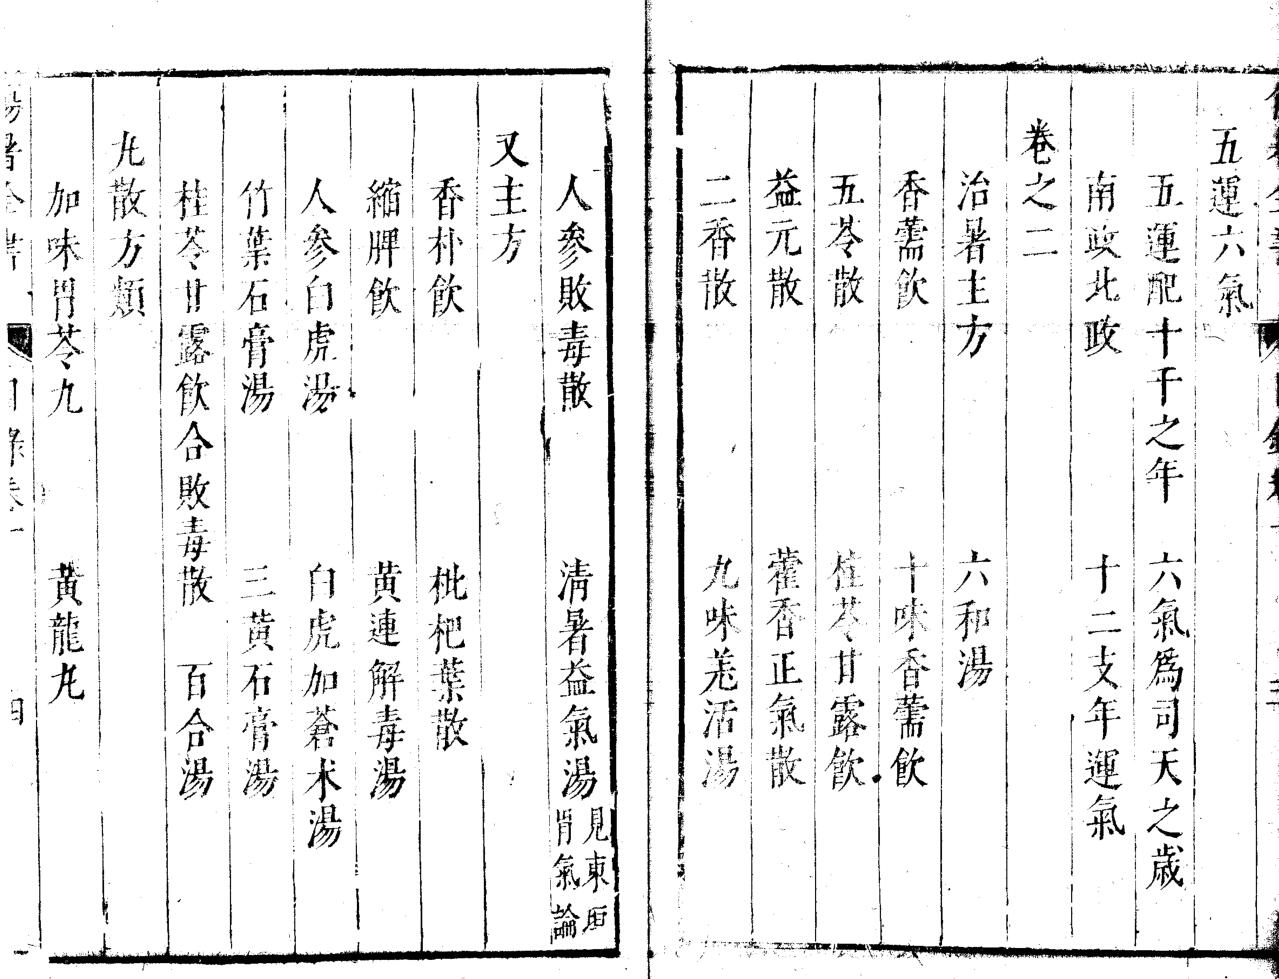 五運六氣
五運配十干之年　六氣爲司天之歲
南政北政　十二支年運氣
卷之二
治暑主方　六和湯
香薷飲　十味香薷飲
五苓散　桂苓甘露飲
益元散　藿香正氣散
二香散　九味羌活湯
人參敗毒散　清暑益氣湯 見東垣胃氣論
又主方
香朴飲　枇杷葉散
縮脾飲　黃連解毒湯
人參白虎湯　白虎加蒼朮湯
竹葉石膏湯　三黃石膏湯
桂苓甘露飲合敗毒散　百合湯
丸散方類
加味胃苓丸　黃龍丸
傷暑全書　目錄卷一　四